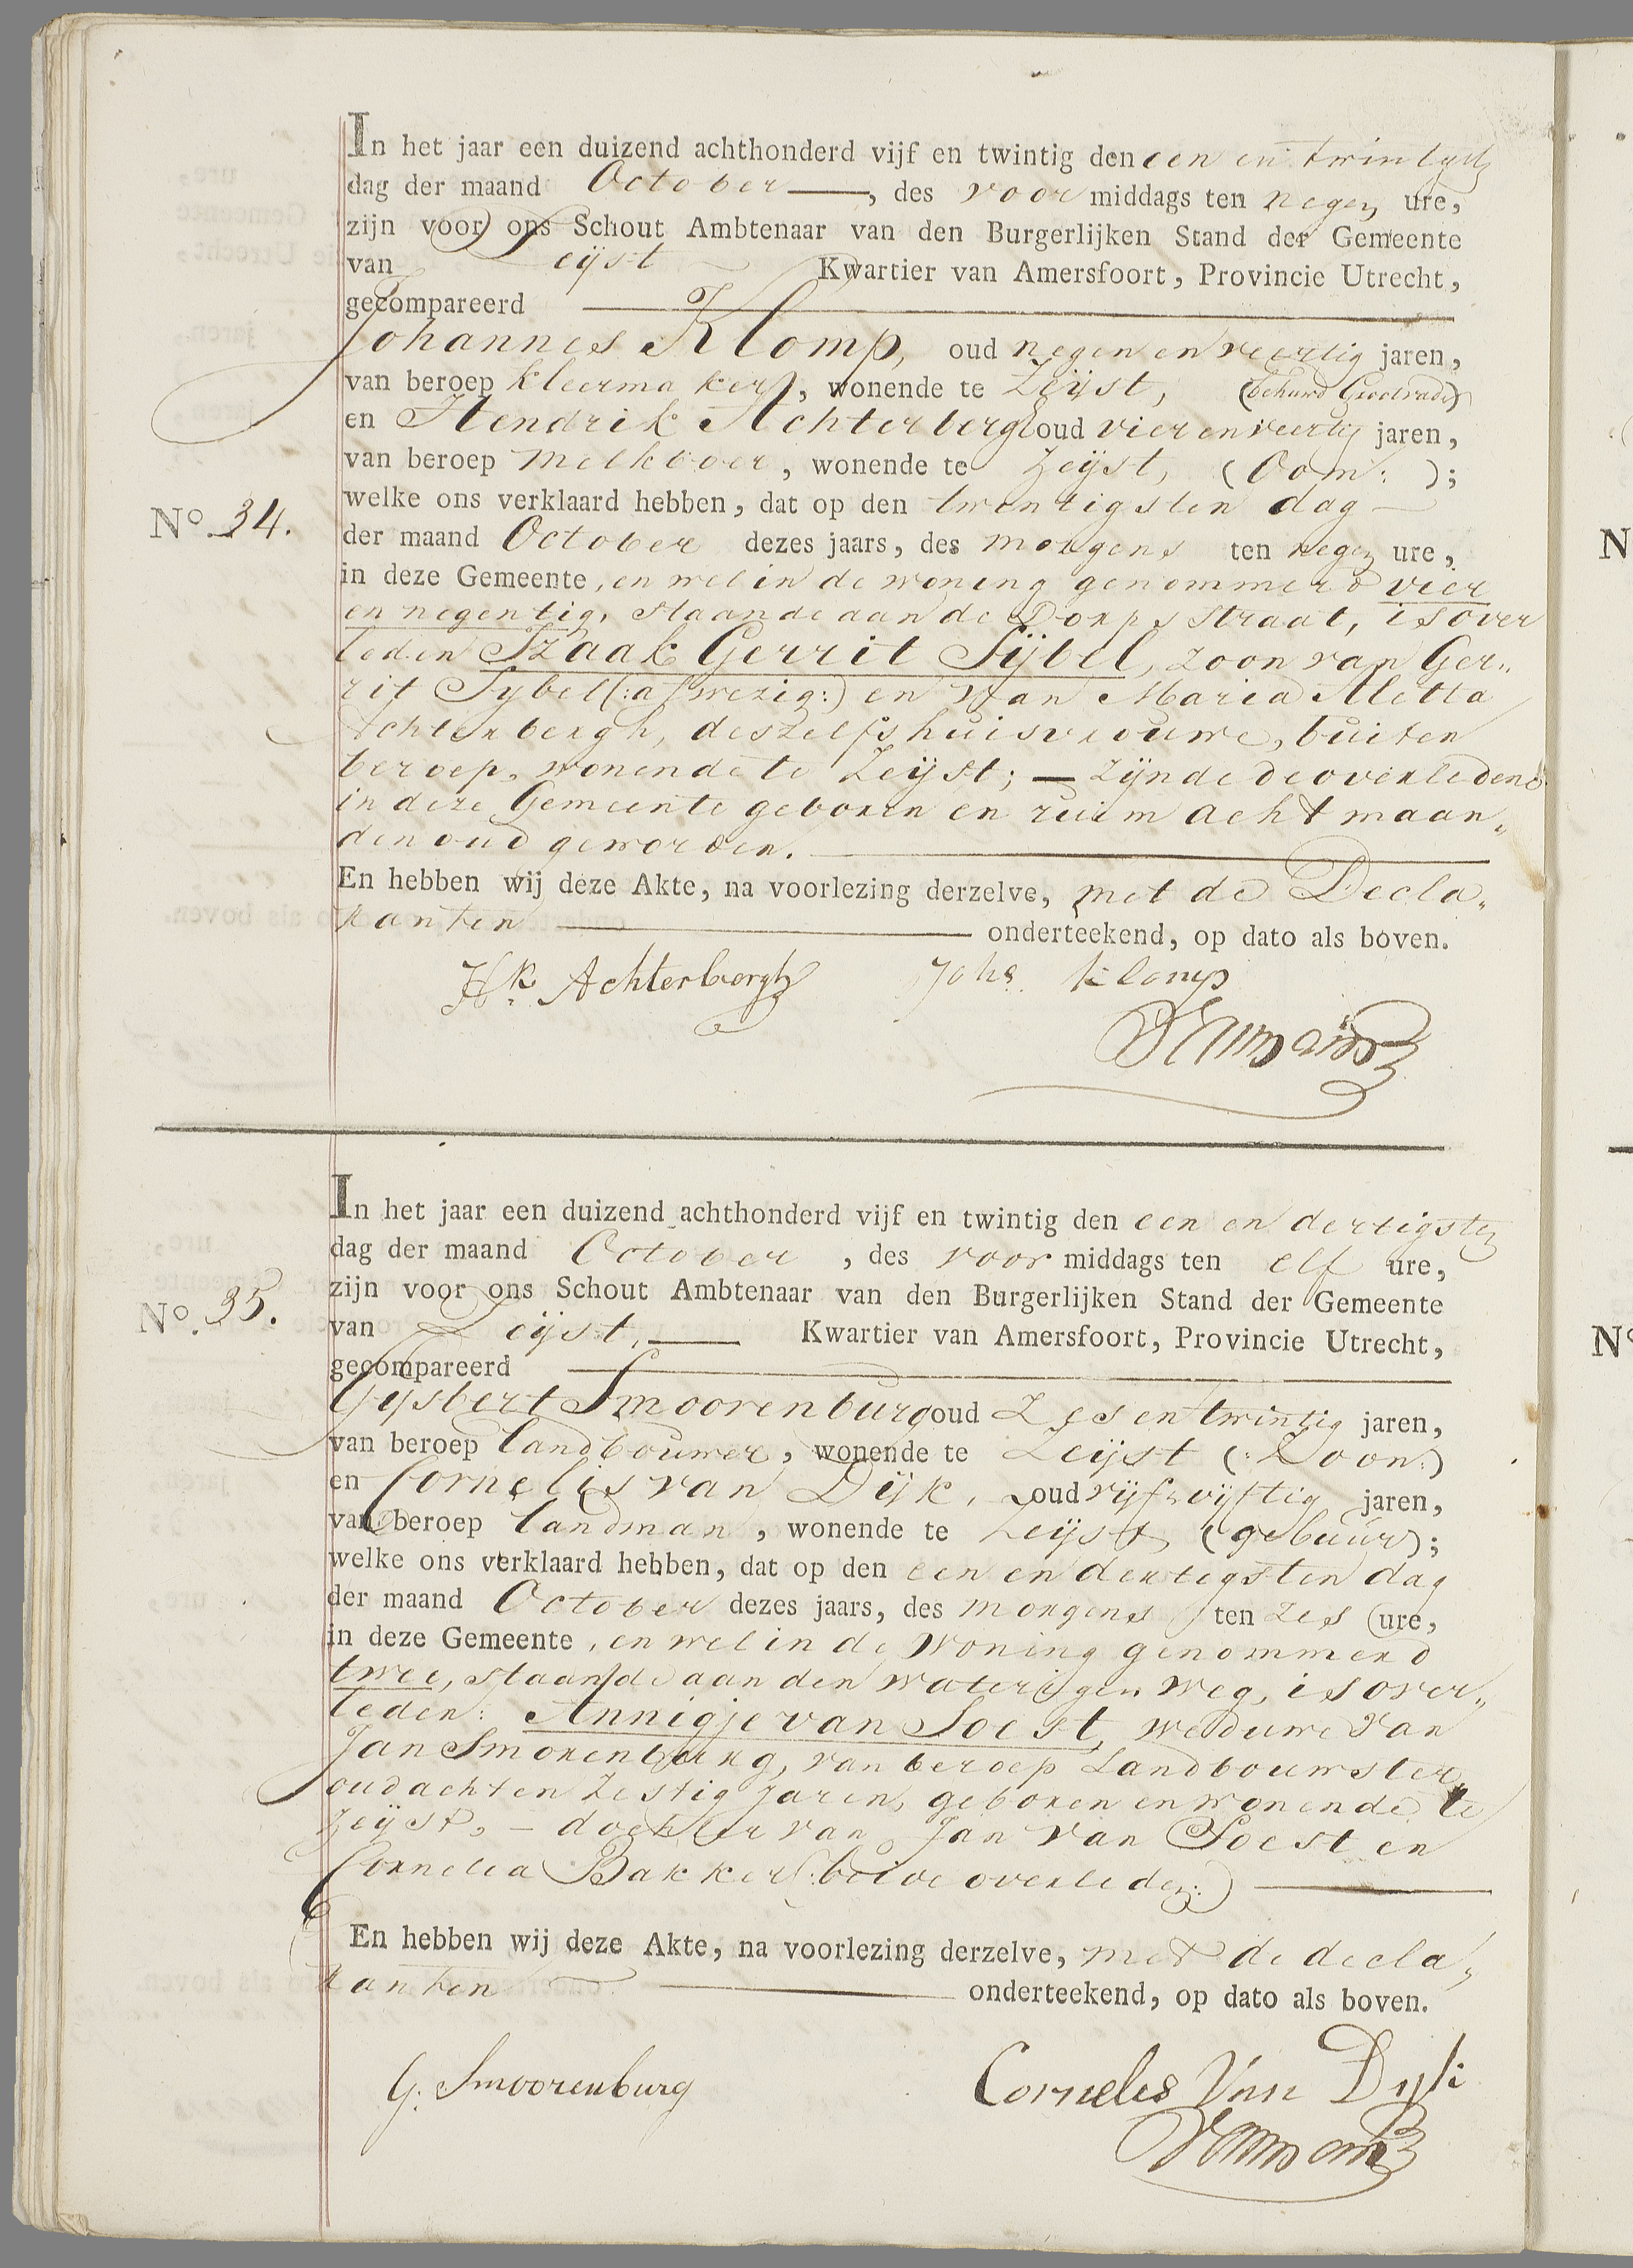 In het jaar een duizend achthonderd vijf en twintig den een en twintigste
dag der maand October, des voor middags ten negen ure,
zijn voor ons Schout Ambtenaar van den Burgerlijken Stand der Gemeente
van Zeijst Kwartier van Amersfoort, Provincie Utrecht,
gecompareerd
Johannes Klomp, oud negen en veertig jaren,
van beroep kleermaker, wonende te Zeijst, (behuwd Grootvader)
en Hendrik Achterbergh oud vier en veertig jaren,
van beroep melkboer, wonende te Zeijst, (Oom:);
welke ons verklaard hebben, dat op den twentigsten dag
No. 34.
der maand October dezes jaars, des morgens ten negen ure,
in deze Gemeente, en wel in de woning genommerd vier
en negentig, staande aan de Dorps straat, is over
leden Izaak Gerrit Sijbel, zoon van Ger„
rit Sybel (:afwezig:) en van Maria Aletta
Achterbergh, deszelfs huisvrouwe, buiten
beroep, wonende te Zeijst; — zijnde de overledene
in deze Gemeente geboren en ruim acht maan„
den oud geworden.
En hebben wij deze Akte, na voorlezing derzelve, met de Decla„
ranten onderteekend, op dato als boven.
Hk. Achterbergh Johs. Klomp
In het jaar een duizend achthonderd vijf en twintig den een en dertigsten
dag der maand October, des voor middags ten elf ure,
zijn voor ons Schout Ambtenaar van den Burgerlijken Stand der Gemeente
No. 35.
van Zeijst, Kwartier van Amersfoort, Provincie Utrecht,
gecompareerd
Gysbert Smoorenburg oud Zes en twintig jaren,
van beroep landbouwer, wonende te Zeijst (:Zoon:)
en Cornelis van Dijk, oud vijf en vijftig jaren,
van beroep landman, wonende te Zeijst (gebuur);
welke ons verklaard hebben, dat op den een en dertigsten dag
der maand October dezes jaars, des morgens ten zes ure,
in deze Gemeente, en wel in de Woning genommerd
twee, staande aan den waterigen weg, is over„
leden: Annigje van Soest, weduwe van
Jan Smorenburg, van beroep Landbouwster,
oud acht en Zestig Jaren, geboren en wonende te
Zeijst, — dochter van Jan van Soest en
Cornelia Bakker (:beide overleden:)
En hebben wij deze Akte, na voorlezing derzelve, met de decla„
ranten onderteekend, op dato als boven.
G. Smoorenburg Corneles Van Dyk